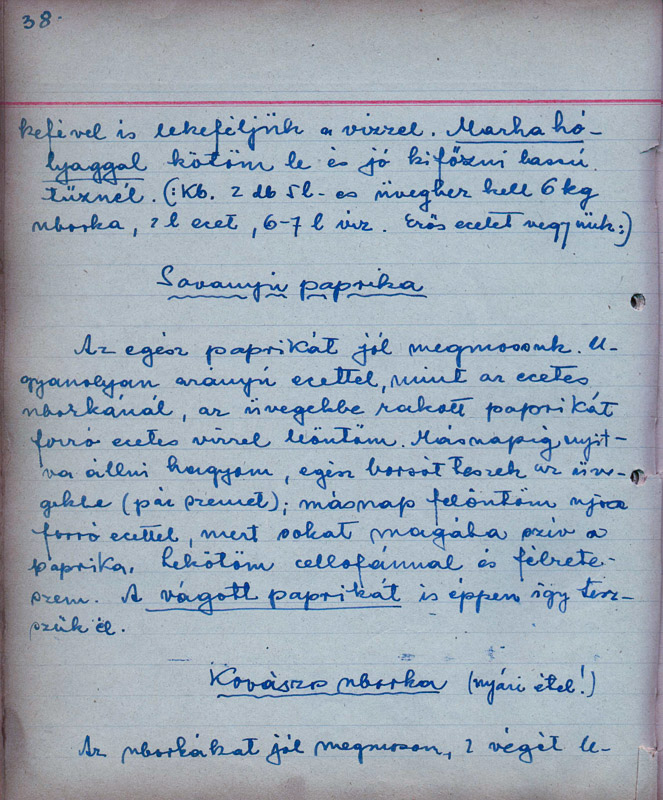 38.
kefével is lekeféljük a vizzel. Marha hó-
lyaggal kötöm le és jó kifőzni lassú
tűznél. (: Kb. 2 db 5 l-es üveghez kell 6 kg
uborka, 2 l ecet, 6-7 l viz. Erős ecetet vegyünk :)
Savanyú paprika
Az egész paprikát jól megmossuk. U-
gyanolyan arányú ecettel, mint az ecetes
uborkánál, az üvegekbe rakott paprikát
forró ecetes vizzel leöntöm. Másnapig nyit-
va állni hagyom, egész borsót teszek az üve-
gekbe (pár szemet); másnap felöntöm újra
forró ecettel, mert sokat magába szív a
paprika. Lekötöm cellofánnal és félrete-
szem. A vágott paprikát is éppen így tesz-
szük el.
Kovászos uborka (nyári étel!)
Az uborkákat jól megmosom, 2 végét le-